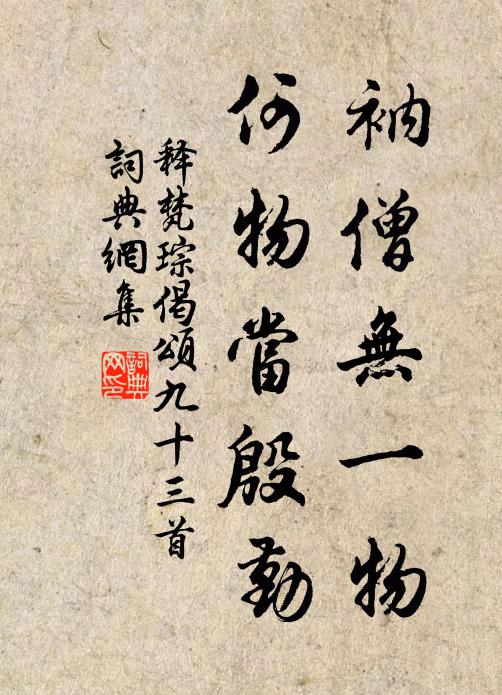 衲僧無一物
何物當殷勤
释梵琮偈頌九十三首
詞典網集
詞典網印